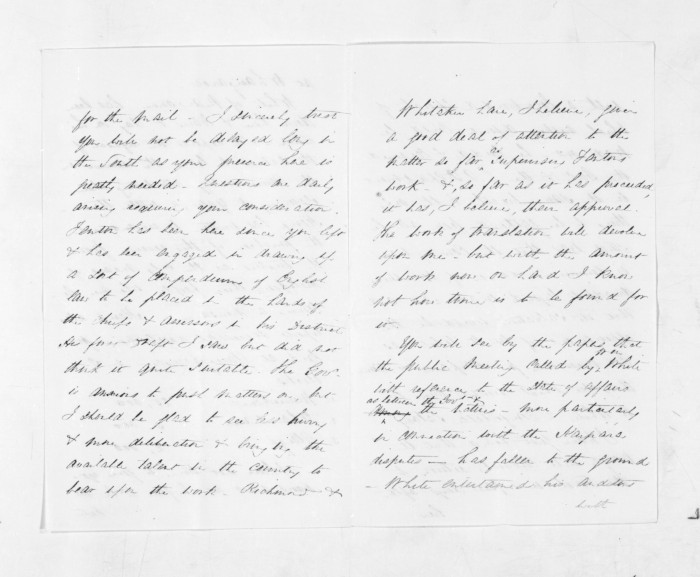 for the Mail - I sincerely trust
you will not be delayed long in
the South as your presence here is
greatly needed - Questions are daily
arising requiring your consideration.
Fenton has been here since you left
& has been engaged in drawing up
a sort of Compendium of English
law to be placed in the hands of
the chiefs & assessors in his District
His first I saw but did not
think it quite suitable. The Govr.
is anxious to push matters on, but
I should be glad to see less hurry
& more deliberation & bring in the
available talent in the country to
bear upon the work. Richmond &
Whitaker have, I believe, given
a good deal of attention to the
matter so far "supervising" Fenton's
work &, so far as it has proceeded,
it has, I believe, their approval.
The work of translation will devolve
upon me - but with the amount
of work now on hand I know
not how time is to be found for
it.
You will see by the papers that
the public Meeting called by Mr White
with reference to the State of affairs
as between the Govt &
the Natives - more particularly
in connection with the
disputes - has fallen to the ground
- White entertained his auditors
with